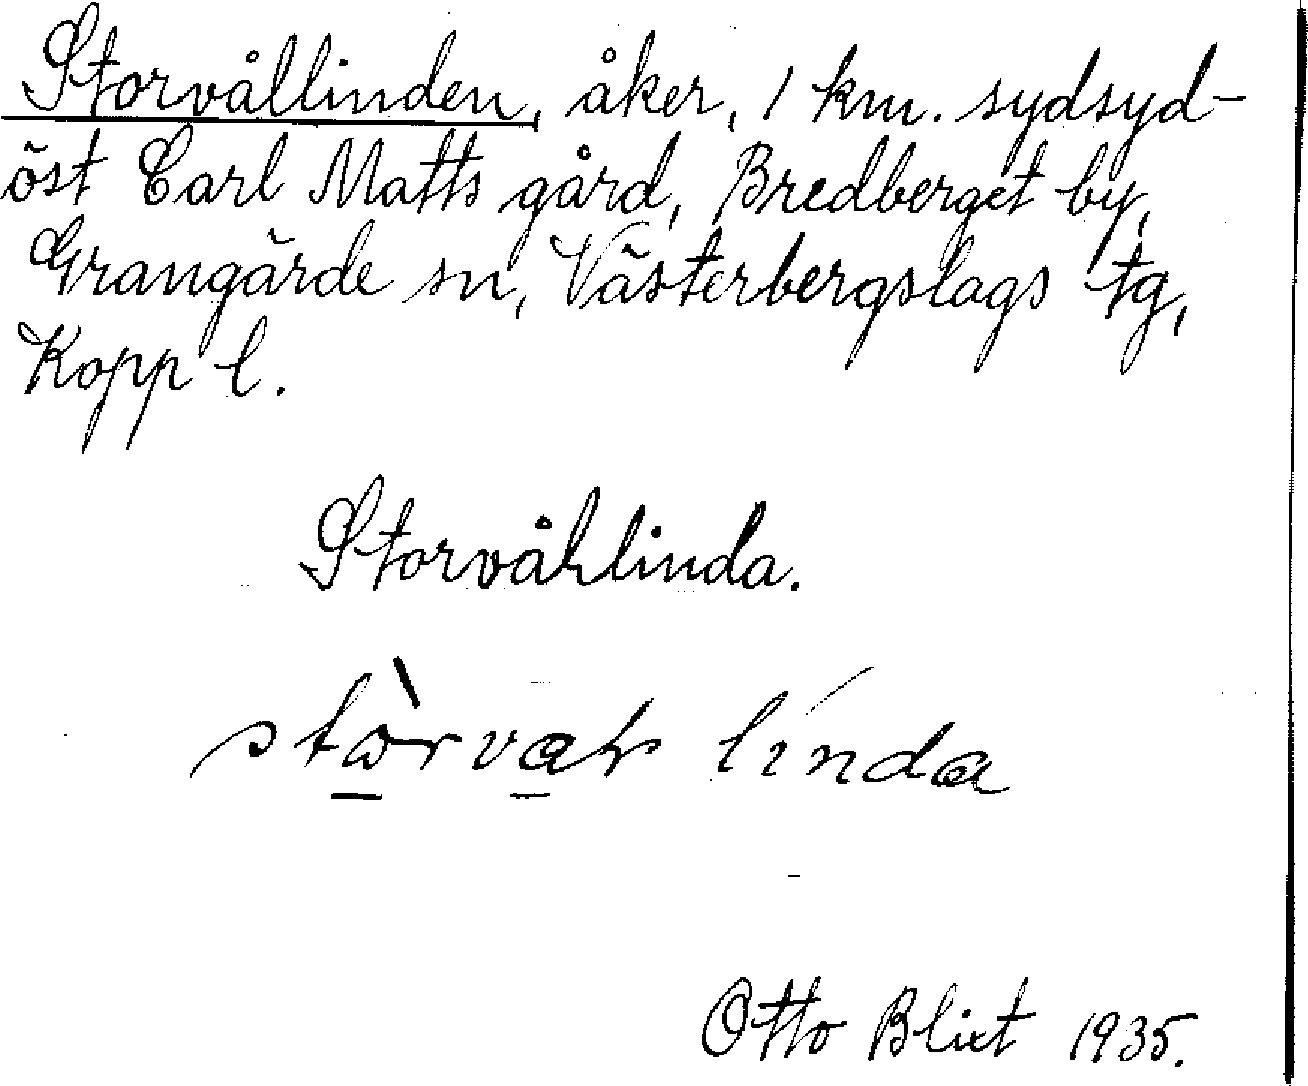 Storvållinden, åker, 1 km. sydsyd-
öst Carl Matts gård, Bredberget by,
Grangärde sn, Västerbergslags tg,
Kopp l.
Storvåhlinda.
linda
Otto Blixt 1935.